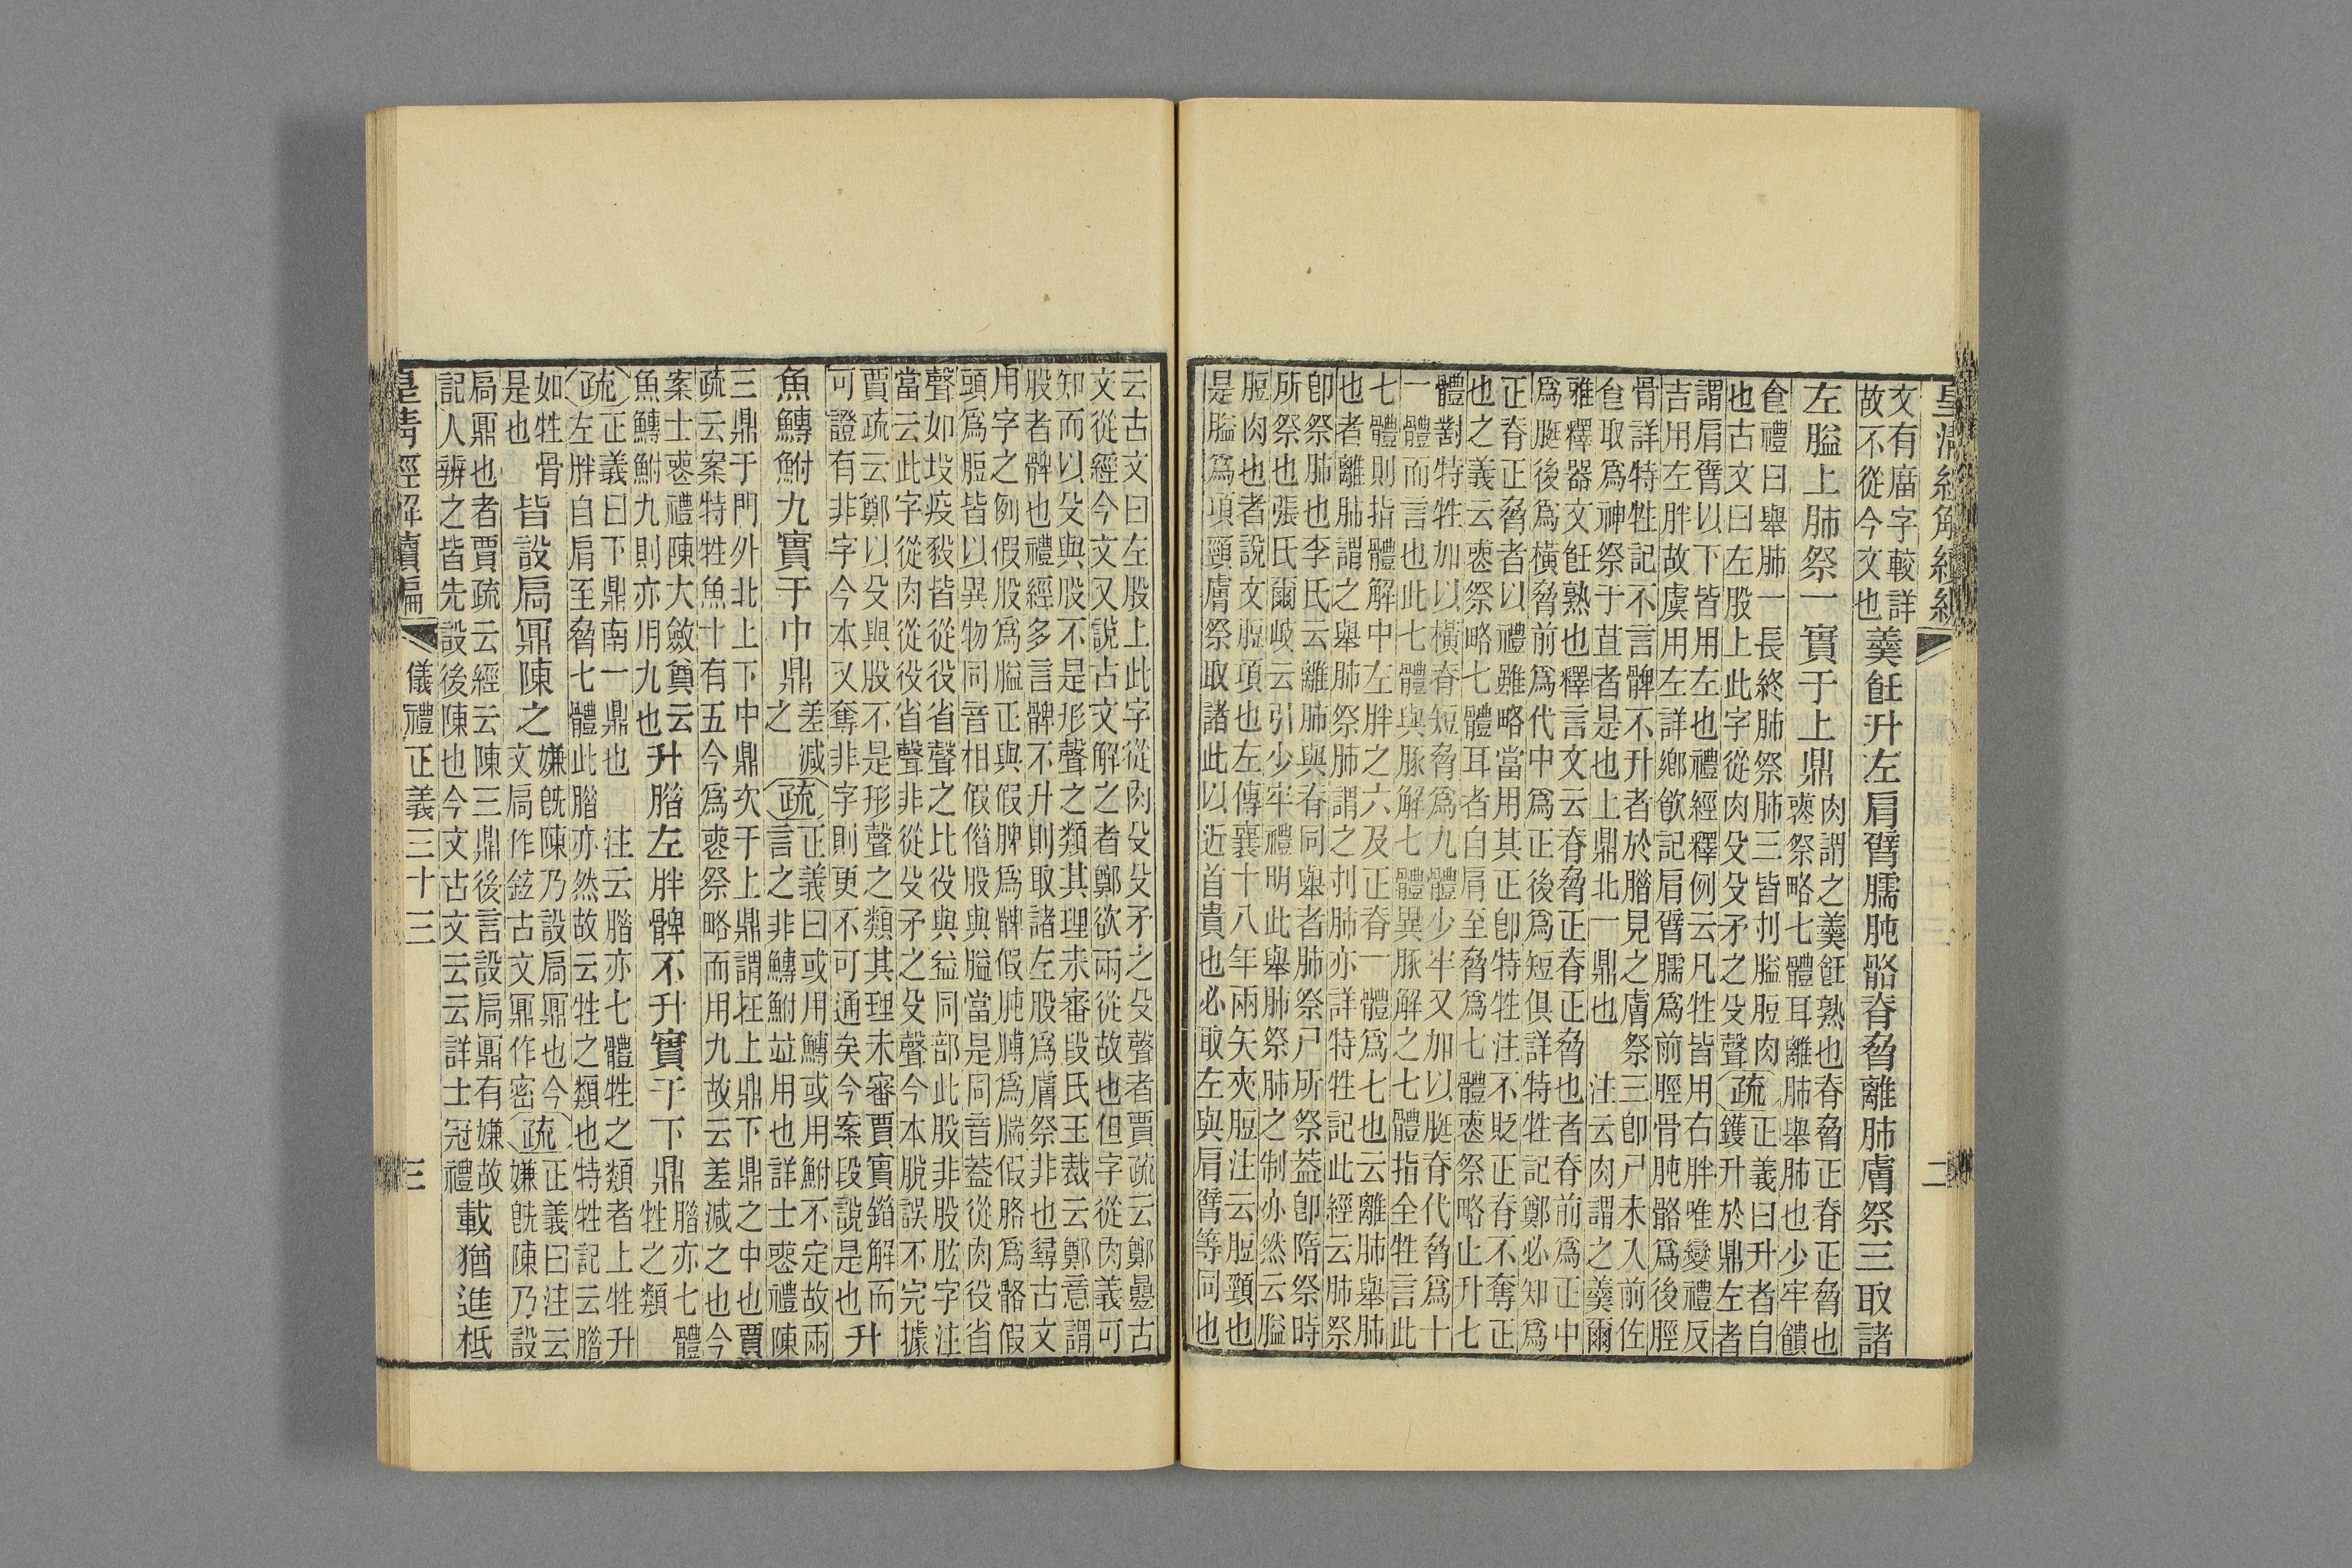 皇清經解續編
二
文有廣字較詳
故不從今文也
羹飪升左肩臂臑肫骼脊脅離肺膚祭三取諸
左膉上肺祭一實于上鼎
肉謂之羹飪熟也脊脅正脊正脅也
喪祭略七體耳離肺舉肺也少牢饋
食禮曰舉肺一長終肺祭肺三皆刌膉脰肉
也古文曰左股上此字從肉殳殳矛之殳聲
疏
正義曰升者自
鑊升於鼎左者
謂肩臂以下皆用左也禮經釋例云凡牲皆用右胖唯變禮反
吉用左胖故虞用左詳鄉飮記肩臂臑爲前脛骨肫骼爲後脛
骨詳特牲記不言髀不升者於腊見之膚祭三卽尸未入前佐
食取爲神祭于苴者是也上鼎北一鼎也 注云肉謂之羹爾
雅釋器文飪熟也釋言文云脊脅正脊正脅也者脊前爲正中
爲脡後爲橫脅前爲代中爲正後爲短俱詳特牲記鄭必知爲
正脊正脅者以禮雖略當用其正卽特牲注不貶正脊不奪正
也之義云喪祭略七體耳者自肩至脅爲七體喪祭略止升七
體對特牲加以橫脊短脅爲九體少牢又加以脡脊代脅爲十
一體而言也此七體與豚解七體異豚解之七體指全牲言此
七體則指體解中左胖之六及正脊一體爲七也云離肺舉肺
也者離肺謂之舉肺祭肺謂之刌肺亦詳特牲記此經云肺祭
卽祭肺也李氏云離肺與脊同舉者肺祭尸所祭葢卽隋祭時
所祭也張氏爾岐云引少牢禮明此舉肺祭肺之制亦然云膉
脰肉也者說文脰項也左傳襄十八年兩矢夾脰注云脰頸也
是膉爲項頸膚祭取諸此以近首貴也必取左與肩臂等同也
云古文曰左股上此字從肉殳殳矛之殳聲者賈疏云鄭疊古
文從經今文又說古文解之者鄭欲兩從故也但字從肉義可
知而以殳與股不是形聲之類其理未審段氏玉裁云鄭意謂
股者髀也禮經多言髀不升則取諸左股爲膚祭非也尋古文
用字之例假股爲膉正與假脾爲髀假肫膊爲腨假胳爲骼假
頭爲脰皆以異物同音相假偕股與膉當是同音葢從肉役省
聲如坄疫豛皆從役省聲之比役與益同部此股非股肱字注
當云此字從肉從役省聲非從殳矛之殳聲今本脫誤不完據
賈疏云鄭以殳與股不是形聲之類其理未審賈實錙解而
可證有非字今本又奪非字則更不可通矣今案段說是也
升
魚鱄鮒九實于中鼎
差減
之
疏
正義曰或用鱄或用鮒不定故兩
言之非鱄鮒並用也詳士喪禮陳
三鼎于門外北上下中鼎次于上鼎謂在上鼎下鼎之中也賈
疏云案特牲魚十有五今爲喪祭略而用九故云差減之也今
案士喪禮陳大斂奠云
魚鱄鮒九則亦用九也
升腊左胖髀不升實于下鼎
腊亦七體
牲之類
疏
正義曰下鼎南一鼎也 注云腊亦七體牲之類者上牲升
左胖自肩至脅七體此腊亦然故云牲之類也特牲記云腊
如牲骨
是也
皆設扃鼏陳之
嫌旣陳乃設扃鼏也今
文扃作鉉古文鼏作密
疏
正義曰注云
嫌旣陳乃設
扃鼏也者賈疏云經云陳三鼎後言設扃鼏有嫌故
記人辨之皆先設後陳也今文古文云云詳士冠禮
載猶進柢
皇清經解續編
儀禮正義三十三
三